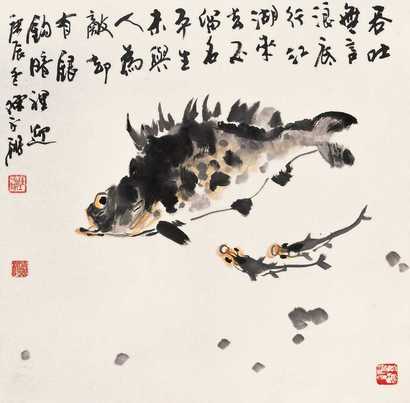 吞吐
無言
浪底
行江
湖來
去不
留名
平生
未與
人為
敵卻
有銀
鈎暗裡迎
庚辰冬